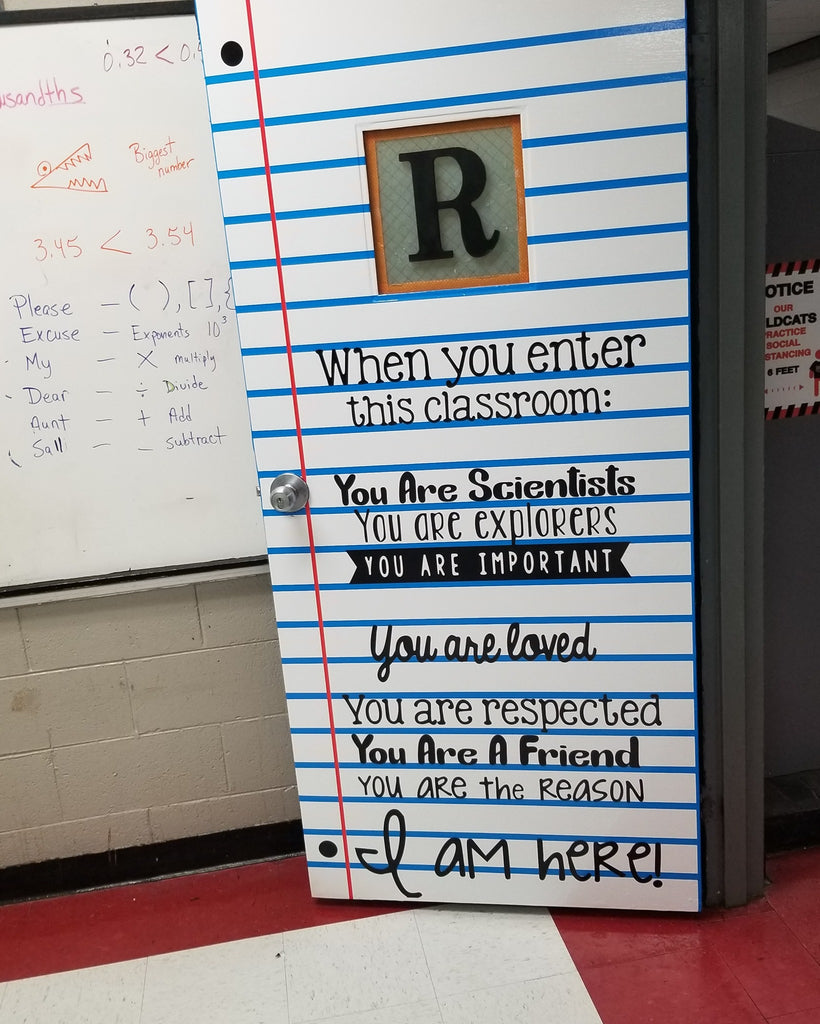 0.32 < 0.
usandths
Biggest
number
3.45 < 3.54
Please — ( ), [ ], {
Excuse — Exponents 10³
My — × multiply
Dear — ÷ Divide
Aunt — + Add
Sall — – subtract
R
When you enter
this classroom:
You Are Scientists
You are explorers
YOU ARE IMPORTANT
You are loved
You are respected
You Are A Friend
You are the Reason
I am here!
OTICE
OUR
LDCATS
RACTICE
SOCIAL
STANCING
6 FEET